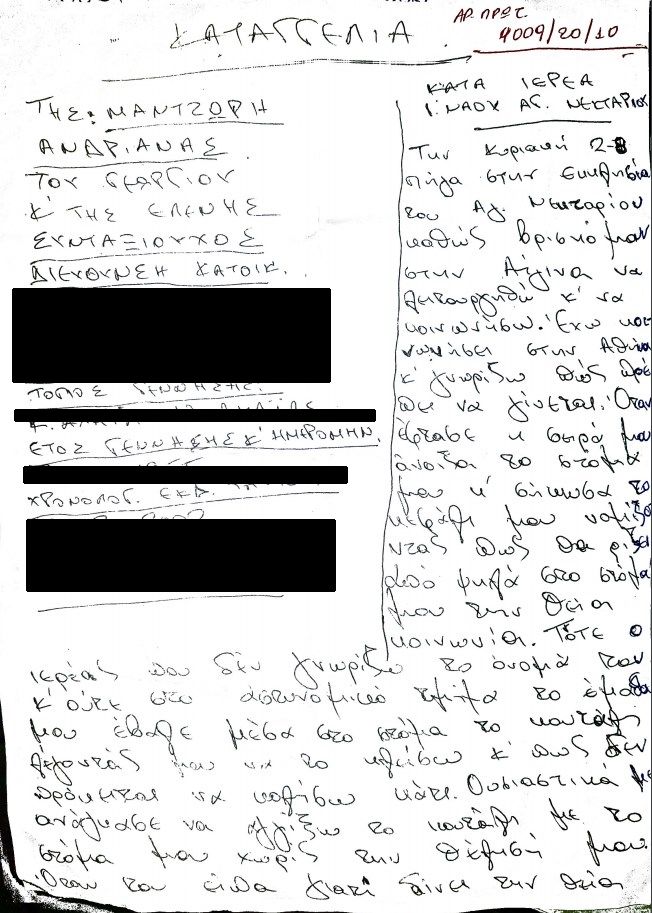 ΚΑΤΑΓΓΕΛΙΑ
ΑΡ. ΠΡΩΤ.
9009/20/10
ΤΗΣ: ΜΑΝΤΖΩΡΗ
ΑΝΔΡΙΑΝΑΣ
ΤΟΥ ΓΕΩΡΓΙΟΥ
Κ' ΤΗΣ ΕΛΕΝΗΣ
ΣΥΝΤΑΞΙΟΥΧΟΣ
ΔΙΕΥΘΥΝΣΗ ΚΑΤΟΙΚ.
ΤΟΠΟΣ ΓΕΝΝΗΣΗΣ.
ΕΤΟΣ ΓΕΝΝΗΣΗΣ Κ' ΗΜΕΡΟΜΗΝ.
ΧΡΟΝΟΛΟΓ. ΕΚΔ.
ΚΑΤΑ ΙΕΡΕΑ
Ι. ΝΑΟΥ ΑΓ. ΝΕΚΤΑΡΙΟΥ
Την Κυριακή 2-8
πήγα στην Εκκλησία
του Αγ. Νεκταρίου
καθώς βρισκόμουν
στην Αίγινα να
λειτουργηθώ κ' να
κοινωνήσω. Έχω κοι
νωνήσει στην Αθήνα
κ' γνωρίζω πώς πρέ
πει να γίνεται. Όταν
έφτασε η σειρά μου
άνοιξα το στόμα
μου κ' σήκωσα το
κεφάλι μου νομίζο
ντας πως θα ρίξει
από ψηλά στο στόμα
μου την Θεία
κοινωνία. Τότε ο
ιερέας που δεν γνωρίζω το όνομά του
κ' ούτε στο αστυνομικό τμήμα το έμαθα
μου έβαλε μέσα στο στόμα το κουτάλι
λέγοντάς μου να το κλείσω κ' πως δεν
πρόκειται να κολήσω κάτι. Ουσιαστικά με
ανάγκασε να αγγίξω το κουτάλι με το
στόμα μου χωρίς την θέλησή μου.
Όταν του είπα γιατί δίνει την θεία